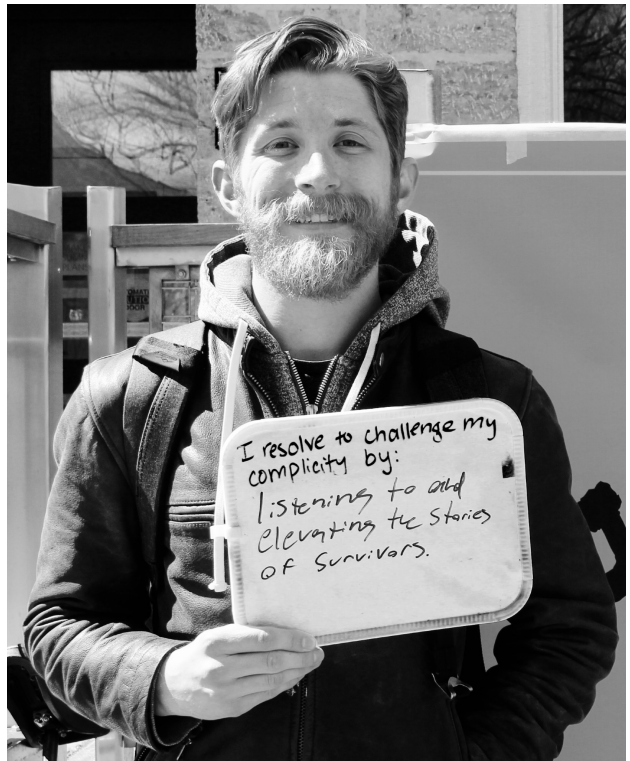 I resolve to challenge my
complicity by:
listening to and
elevating the stories
of survivors.